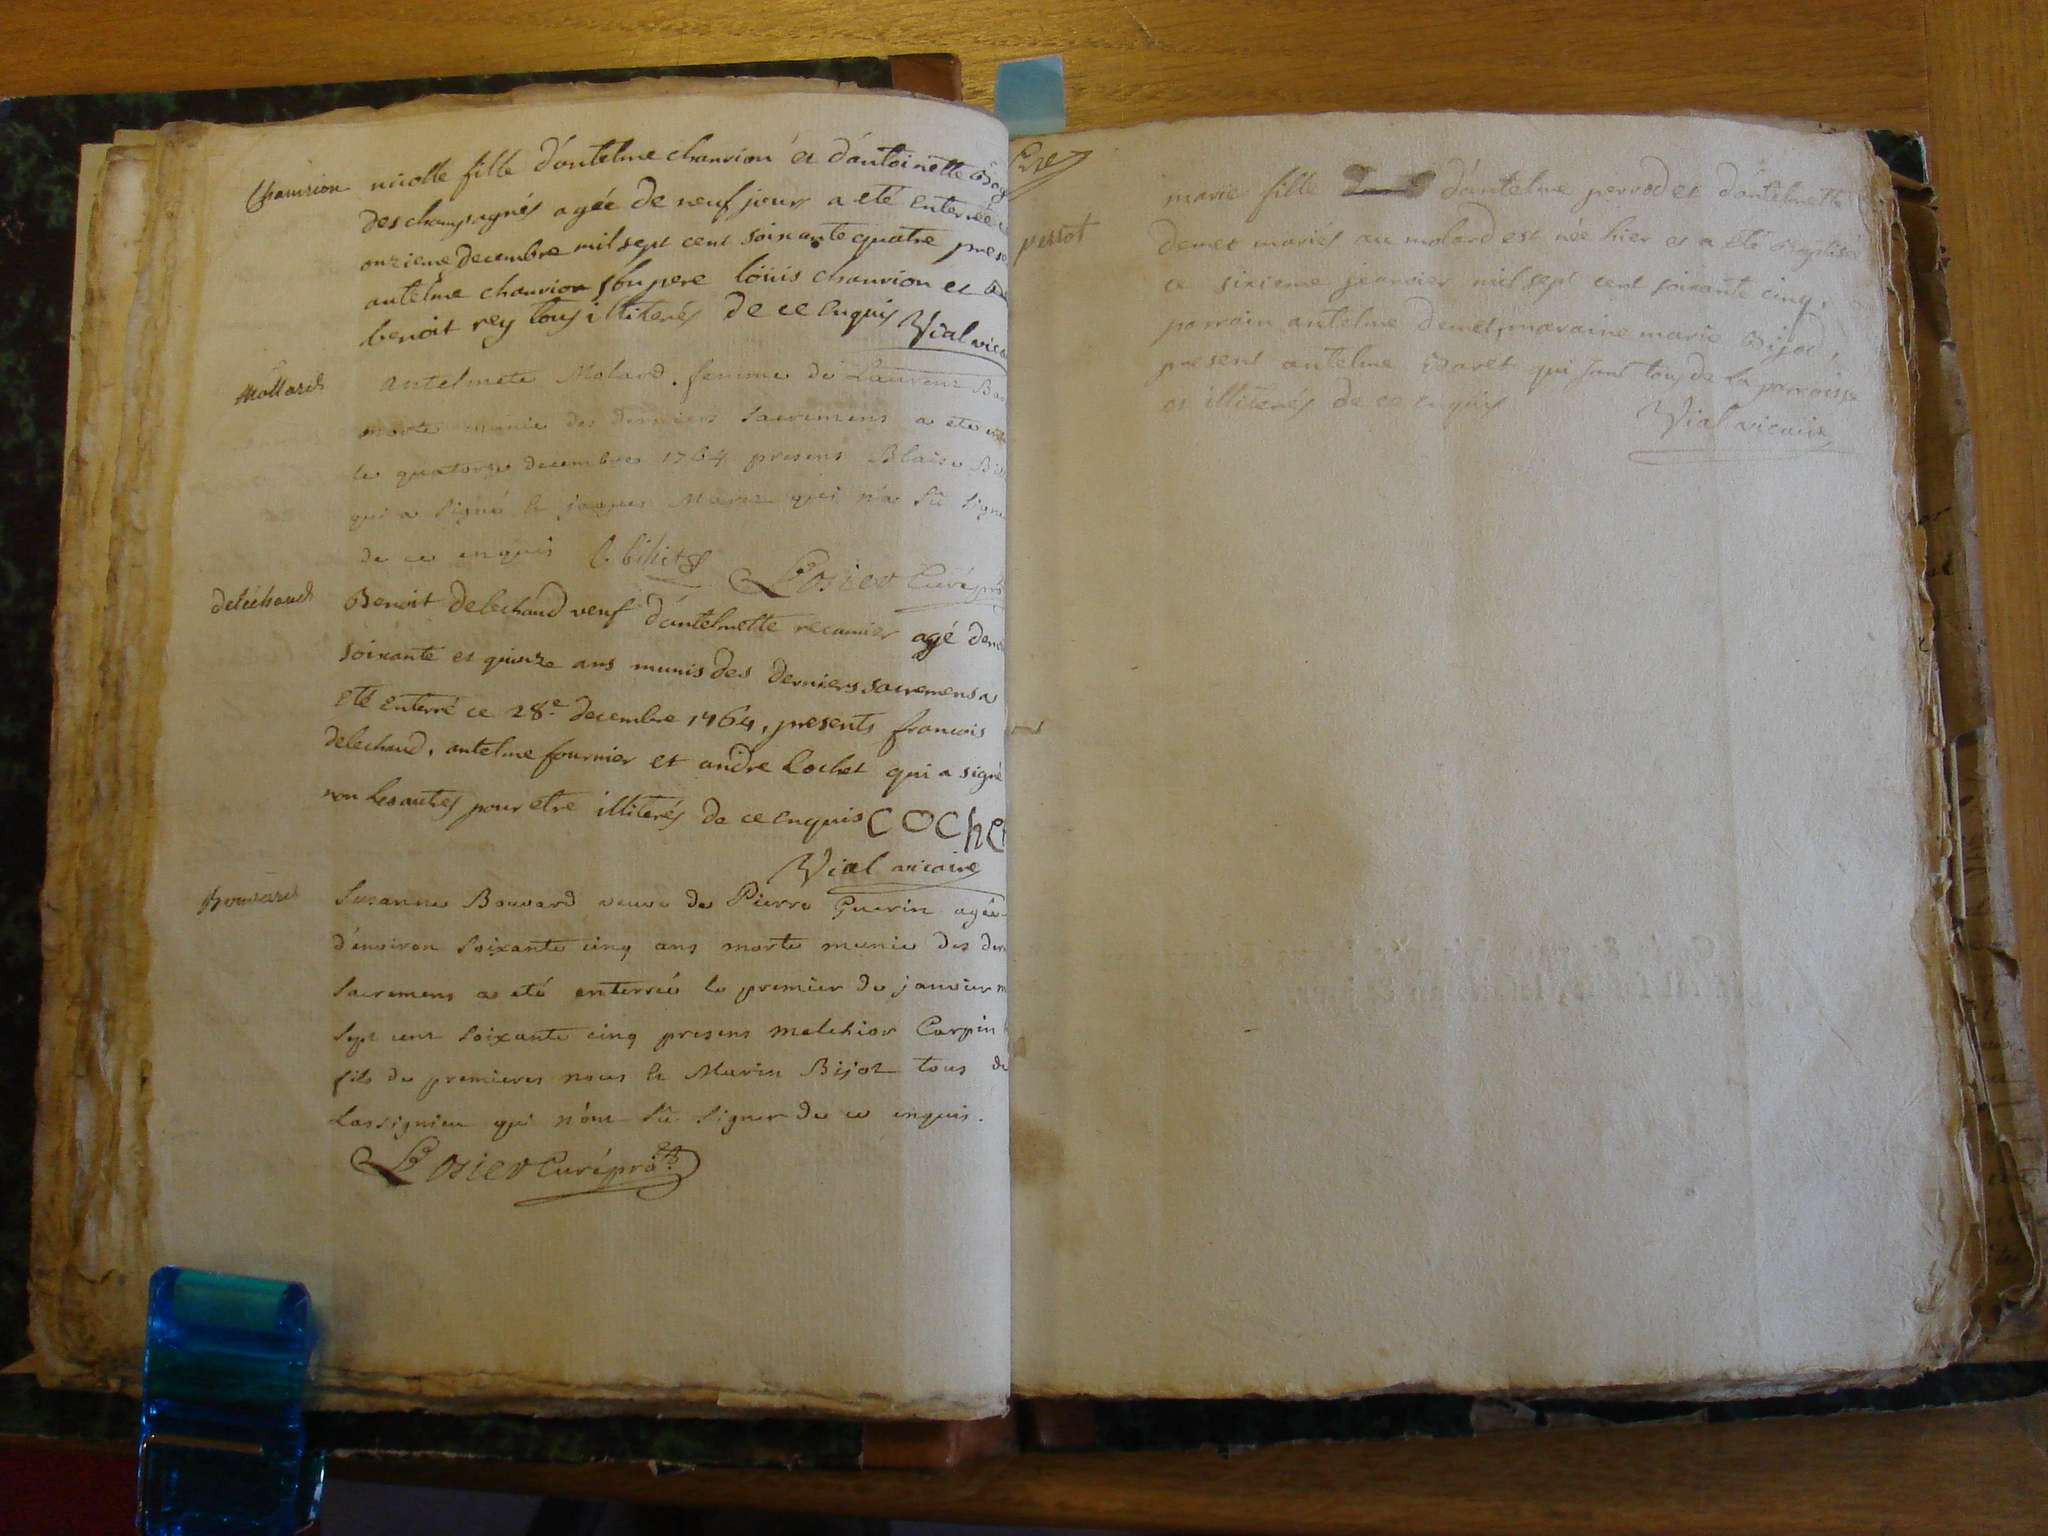 Chanvion
nicolle fille d'antelme chanvion et d'antoinette
des champagnes agée de neuf jour a eté enterrée
onzieme decembre mil sept cent soixante quatre
antelme chanvion son pere loüis chanvion et
benoit rey tous illiterés de ce enquis Vial
Mollard
antelmete Molard femme de Laurent
morte munie des derniers sacremens a ete
le quatorze decembre 1764 presens Blaise
qui a signé & jaques qui n'a sû
de ce enquis
Losier Curé
delechaud
Benoit delechaud veuf d'antelmette recamier agé
soixante et quinze ans munis des derniers sacremens a
eté enterré ce 28e decembre 1764, presents francois
delechaud, antelme fournier et andre Cochet qui a signé
non les autres pour etre illiterés de ce enquis COCHE
Vial vicaire
Bouvard
Susanne Bouvard veuve de Pierre Guerin agée
d'environ soixante cinq ans morte munie des
sacremens a eté enterrée le premier de janvier
sept cent soixante cinq presens melchior Carpin
fils de premieres noces & Marin Bijot tous de
Lassignieu qui n'ont sû signer de ce enquis.
Losier Curé
perrot
marie fille d'antelme perrod et d'antelmette
demet mariés au molard est née hier et a eté Baptisée
ce sixieme jeanvier mil sept cent soixante cinq,
parrain antelme demet, maraine marie Bijod,
present antelme qui sont tous de la parroisse
et illiterés de ce enquis
Vial vicaire